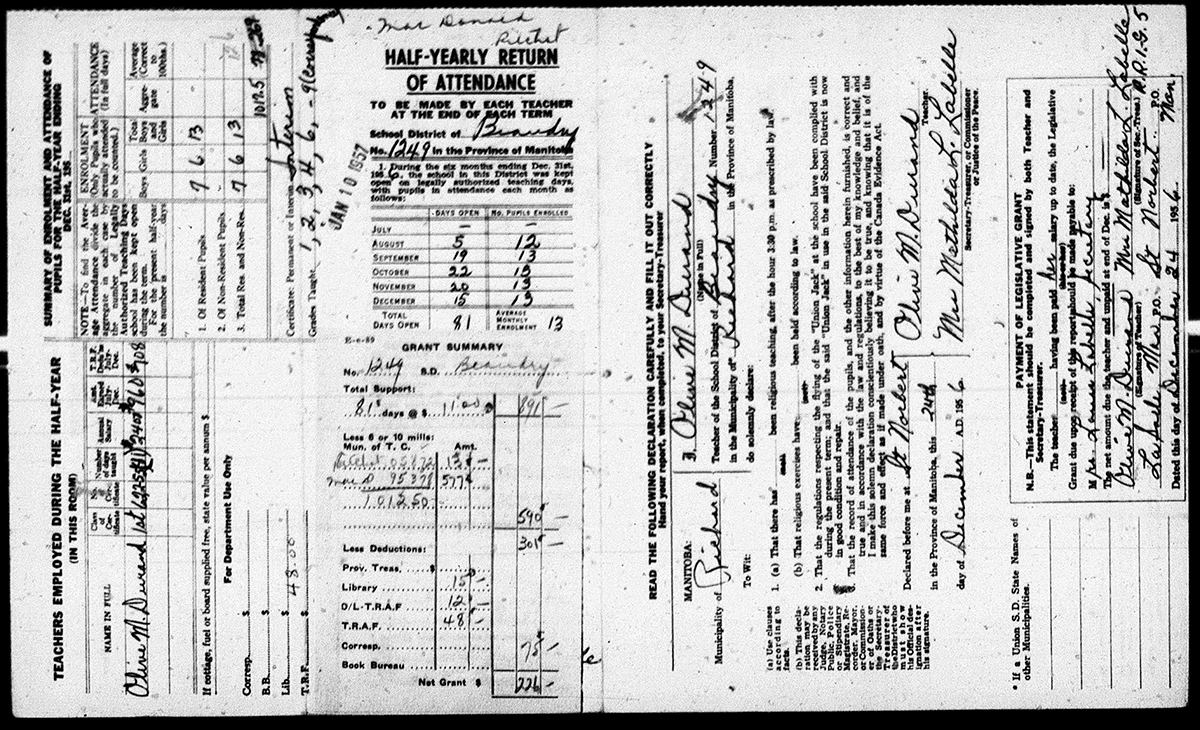 Mac Donald
Ritchot
HALF-YEARLY RETURN
OF ATTENDANCE
TO BE MADE BY EACH TEACHER
AT THE END OF EACH TERM
School District of Beaudry
No. 1249 in the Province of Manitoba
JAN 10 1957
1. During the six months ending Dec. 31st,
1956, the school in this District was kept
open on legally authorized teaching days,
with pupils in attendance each month as
follows:
DAYS OPEN No. PUPILS ENROLLED
JULY — —
AUGUST 5 12
SEPTEMBER 19 13
OCTOBER 22 13
NOVEMBER 20 13
DECEMBER 15 13
TOTAL DAYS OPEN 81 AVERAGE MONTHLY ENROLMENT 13
E-6-89
GRANT SUMMARY
No. 1249 S.D. Beaudry
Total Support:
81 days @ $ 11.00 891 —
Less 6 or 10 mills:
Mun. of T. C. Amt.
Ritchot 05872 13 —
Mac D. 95378 577 —
101250
590 —
301 —
Less Deductions:
Prov. Treas. $
Library 15 —
O/L-T.R.A.F 12 —
T.R.A.F. 48 —
Corresp. 75 —
Book Bureau
Net Grant $ 226 —
SUMMARY OF ENROLMENT AND ATTENDANCE OF
PUPILS FOR THE HALF-YEAR ENDING
DEC. 31st, 195
NOTE—To find the Aver-
age Attendance divide the
aggregate in each case by
the number of Legally
Authorized Teaching Days
school has been kept open
during the term.
For the present half-year
the number is days
ENROLMENT
(Only Pupils who
actually attended
to be counted.)
ATTENDANCE
(In full days)
Boys Girls Total Boys and Girls Aggregate Average (Correct to 100ths.)
1. Of Resident Pupils 7 6 13
2. Of Non-Resident Pupils
3. Total Res. and Non-Res. 7 6 13 1017.5
Certificate: Permanent or Interim Interim
Grades Taught 1, 2, 3, 4, 6, - 9
TEACHERS EMPLOYED DURING THE HALF-YEAR
(IN THIS ROOM)
NAME IN FULL Class of Certificate No. of Certificate Number of days taught Annual Salary Amt. Earned July-Dec. T.R.F. Ded'n July-Dec.
Olive M. Durand 1st 81 2400 960
If cottage, fuel or board supplied free, state value per annum $
For Department Use Only
Corresp. $
B.B. $
Lib. $ 48.00
T.R.F. $
READ THE FOLLOWING DECLARATION CAREFULLY AND FILL IT OUT CORRECTLY
Hand your report, when completed, to your Secretary-Treasurer
MANITOBA:
Municipality of Richard
To Wit:
I, Olive M. Durand
(Name in Full)
Teacher of the School District of Beaudry Number 1249
in the Municipality of Richard in the Province of Manitoba,
do solemnly declare:
(a) Use clauses
according to
facts.
(b) This decla-
ration may be
received by any
Judge, Notary
Public, Police
or Stipendiary
Magistrate, Re-
corder, Mayor,
or Commission-
er of Oaths or
the Secretary-
Treasurer of
the District who
must show
his Official des-
ignation after
his signature.
1. (a) That there has been religious teaching, after the hour 3:30 p.m. as prescribed by law.
(b) That religious exercises have been held according to law.
2. That the regulations respecting the flying of the "Union Jack" at the school have been complied with
during the present term; and that the said Union Jack" in use in the said School District is now
in good condition and repair.
That the record of attendance of the pupils, and the other information herein furnished, is correct and
true and in accordance with the law and regulations, to the best of my knowledge and belief, and
I make this solemn declaration conscientiously believing it to be true, and knowing that it is of the
same force and effect as if made under oath, and by virtue of the Canada Evidence Act.
Declared before me at St Norbert
in the Province of Manitoba, this 24th
day of December A.D. 1956
Olive M. Durand
Teacher.
Mrs Mathilda L. Labelle
Secretary-Treasurer, or Commissioner
or Justice of the Peace.
* If a Union S.D. State Names of
other Municipalities.
PAYMENT OF LEGISLATIVE GRANT
N.B.—This statement should be completed and signed by both Teacher and
Secretary-Treasurer.
The teacher having been paid her salary up to date, the Legislative
Grant due upon receipt of this report should be made payable to:
Mrs. Louis Labelle, Secretary
The net amount due the teacher and unpaid at end of Dec. is $
Olive M. Durand Mrs Mathilda L. Labelle
(Signature of Teacher) (Signature of Sec.-Treas.)
La Salle Man P.O. St Norbert P.O. Man.
R.R. 1 G. 5
Dated this day of December 24 1956